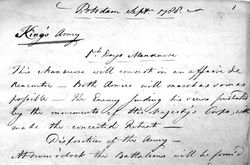 Potsdam Sept 1788.
King's Army
1st Days Manœuvre
This Manœuvre will consist in an affaire de
Rencontre — Both Armies will march as soon as
possible — The Enemy finding his views frustrated
by the movements of His Majesty's Corps, will
make the concerted Retreat —
Disposition of the Army —
At seven o'clock the Battalions will be formed